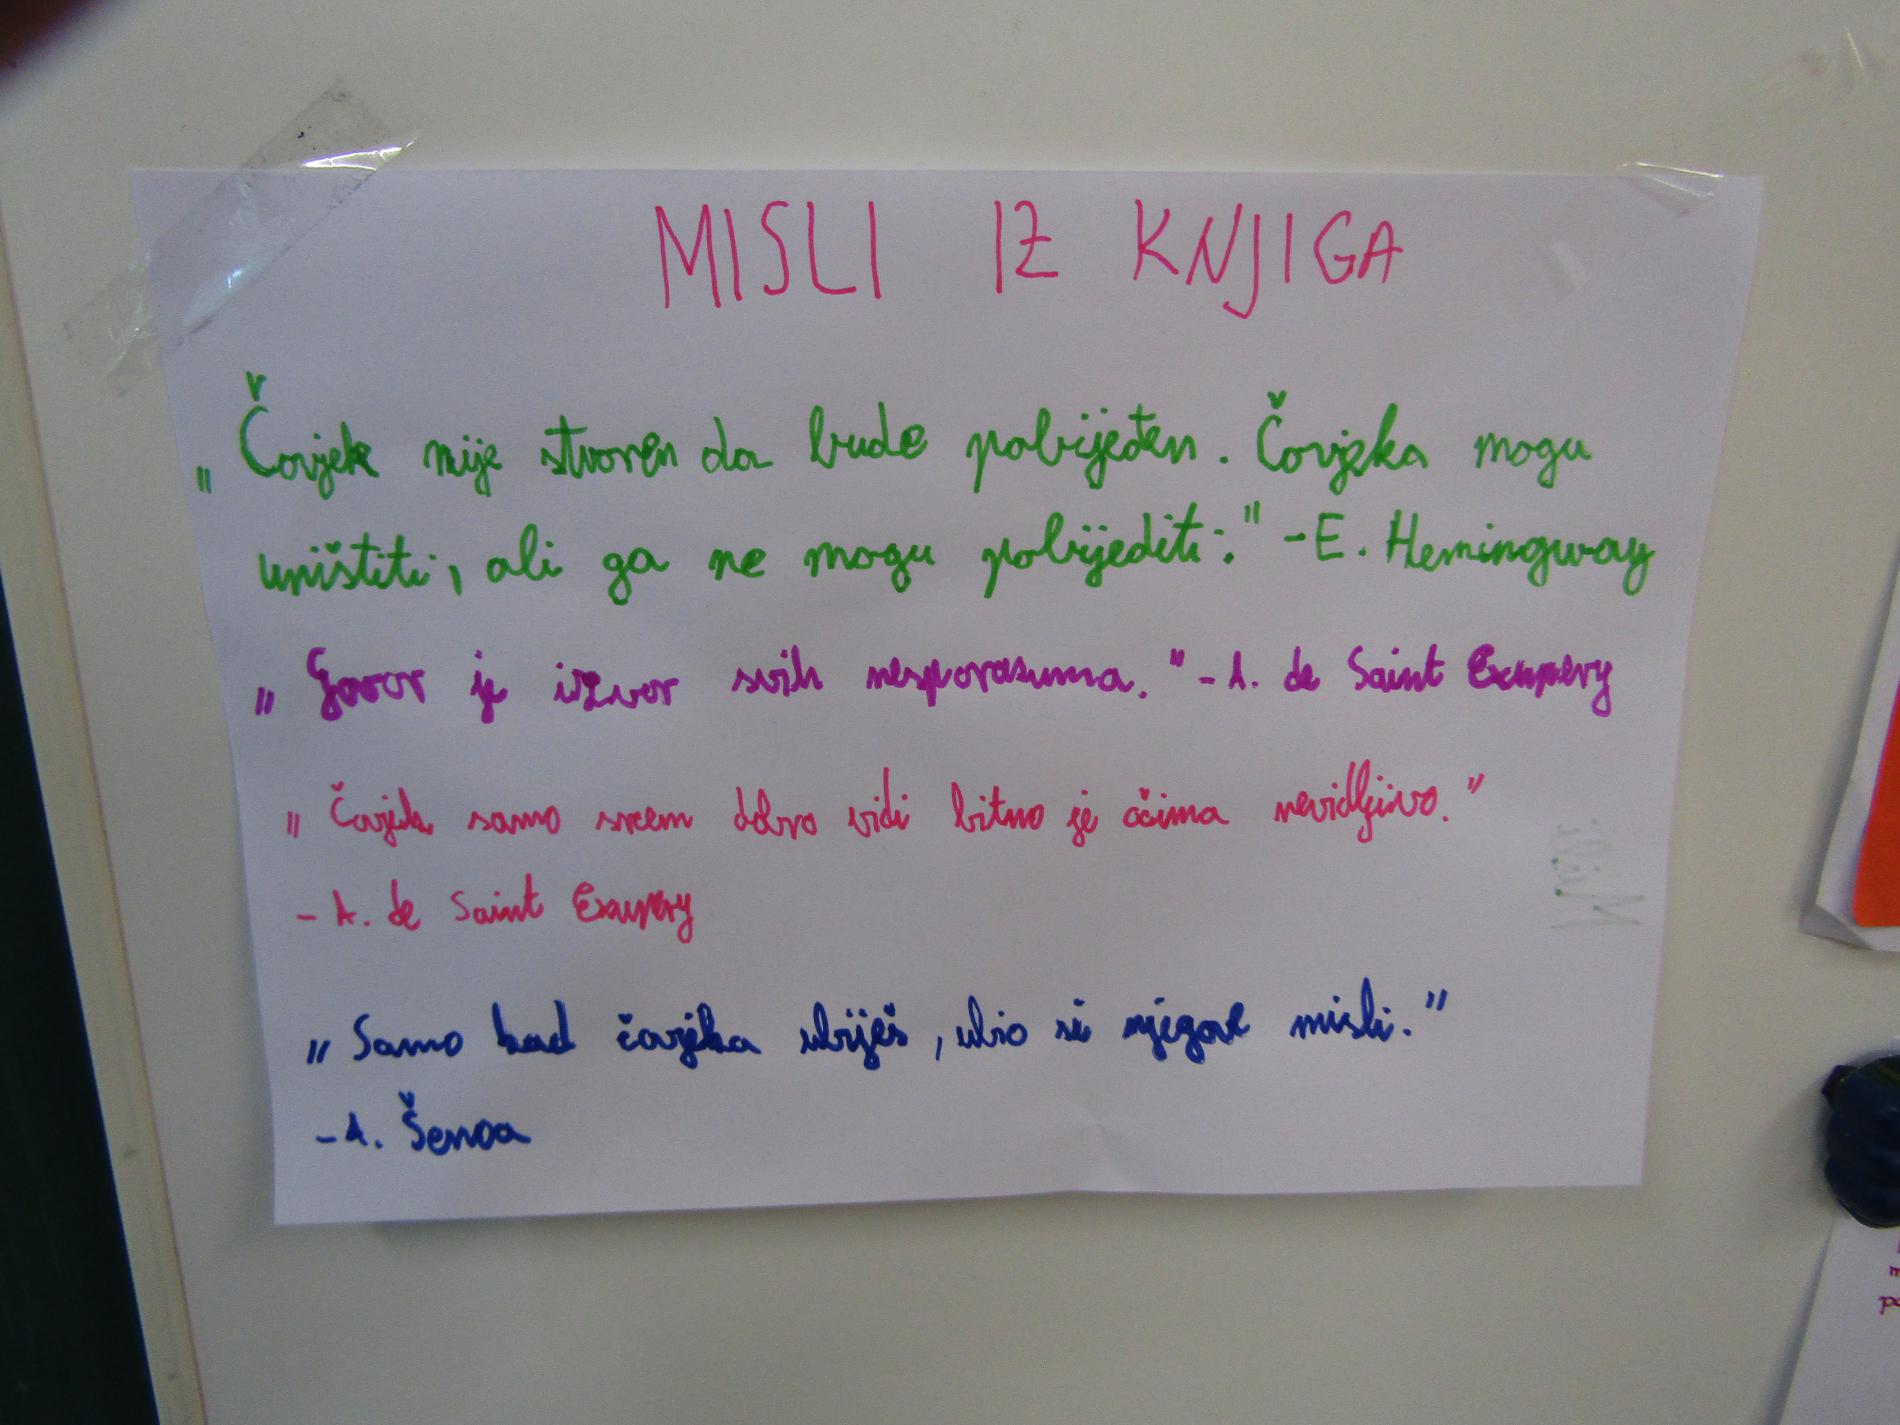 MISLI IZ KNJIGA
„Čovjek nije stvoren da bude pobijeđen. Čovjeka mogu
uništiti, ali ga ne mogu pobijediti." -E. Hemingway
„Govor je izvor svih nesporazuma." -A. de Saint Exupery
„Čovjek samo srcem dobro vidi bitno je očima nevidljivo."
- A. de Saint Exupery
„Samo kad čovjeka ubiješ, ubio si njegove misli."
-A. Šenoa